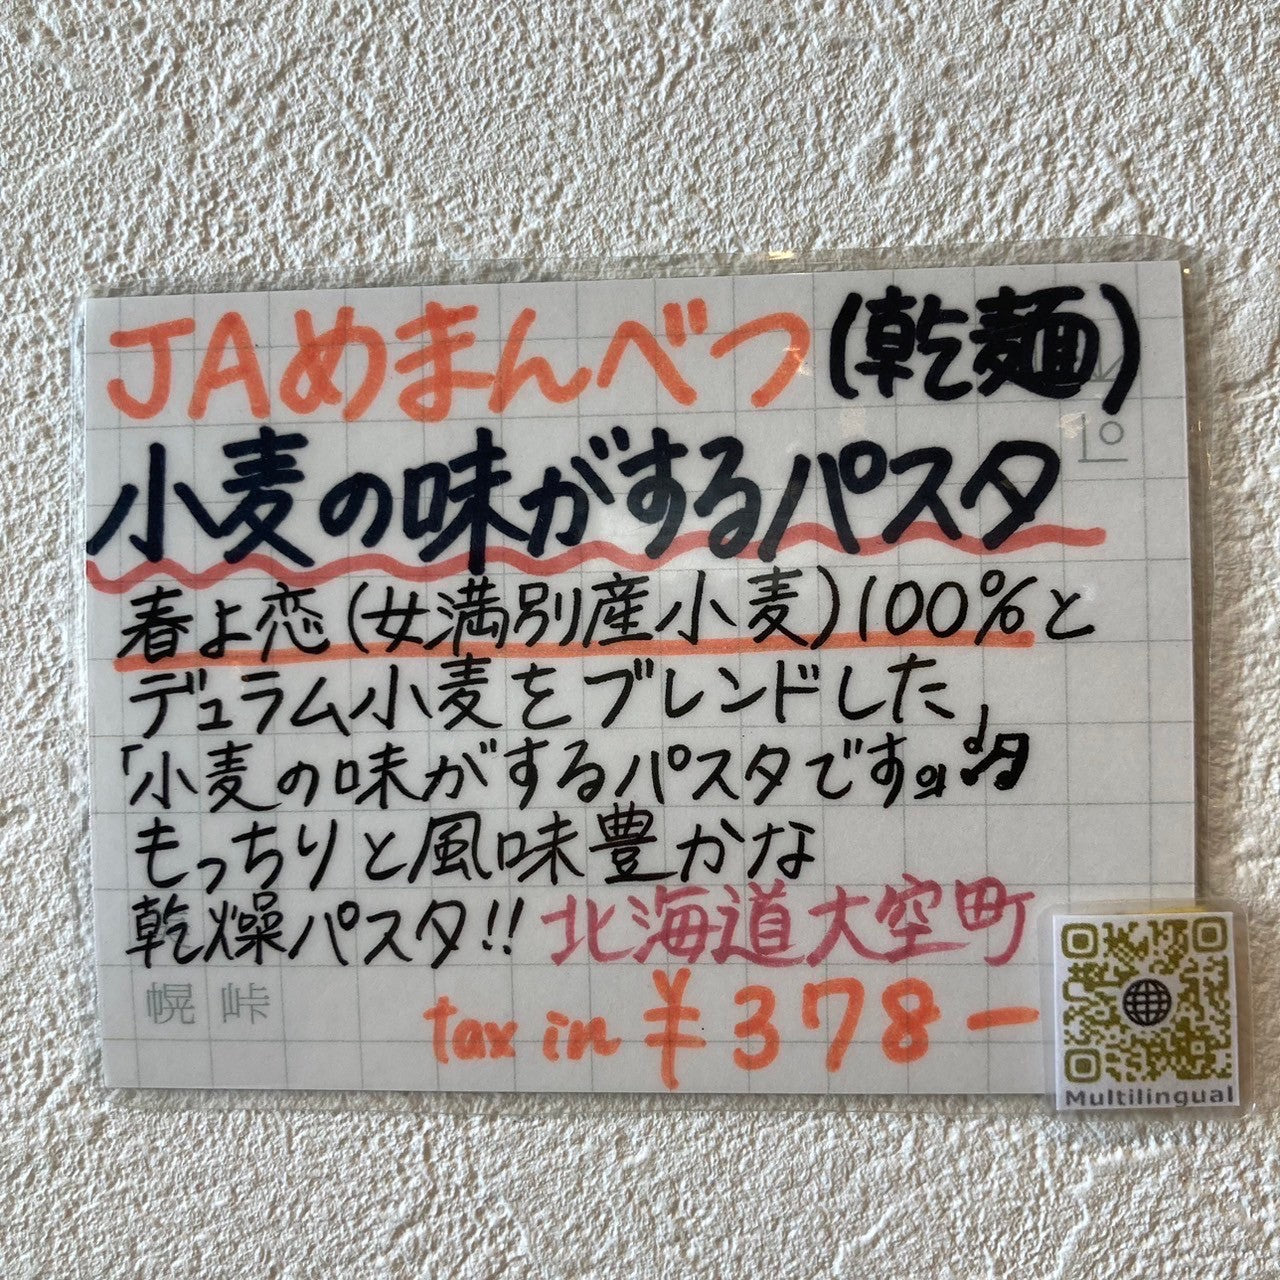 JAめまんべつ(乾麺)
小麦の味がするパスタ
春よ恋(女満別産小麦)100%と
デュラム小麦をブレンドした
「小麦の味がするパスタです。
もっちりと風味豊かな
乾燥パスタ!! 北海道大空町
幌 峠
tax in ¥378-
Multilingual